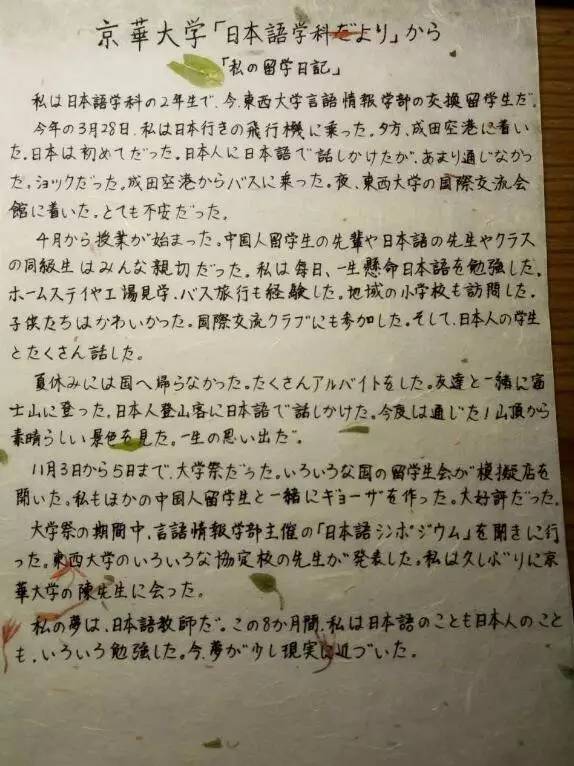 京華大学「日本語学科だより」から
「私の留学日記」
私は日本語学科の2年生で、今、東西大学言語情報学部の交換留学生だ。
今年の3月28日、私は日本行きの飛行機に乗った。夕方、成田空港に着い
た。日本は初めてだった。日本人に日本語で話しかけたが、あまり通じなかっ
た。ショックだった。成田空港からバスに乗った。夜、東西大学の国際交流会
館に着いた。とても不安だった。
4月から授業が始まった。中国人留学生の先輩や日本語の先生やクラス
の同級生はみんな親切だった。私は毎日、一生懸命日本語を勉強した。
ホームステイや工場見学、バス旅行も経験した。地域の小学校も訪問した。
子供たちはかわいかった。国際交流クラブにも参加した。そして、日本人の学生
とたくさん話した。
夏休みには国へ帰らなかった。たくさんアルバイトをした。友達と一緒に富
士山に登った。日本人登山客に日本語で話しかけた。今度は通じた!山頂から
素晴らしい景色を見た。一生の思い出だ。
11月3日から5日まで、大学祭だった。いろいろな国の留学生会が模擬店を
開いた。私もほかの中国人留学生と一緒にギョーザを作った。大好評だった。
大学祭の期間中、言語情報学部主催の「日本語シンポジウム」を聞きに行
った。東西大学のいろいろな協定校の先生が発表した。私は久しぶりに京
華大学の陳先生に会った。
私の夢は、日本語教師だ。この8か月間、私は日本語のことも日本人のこと
も、いろいろ勉強した。今、夢が少し現実に近づいた。